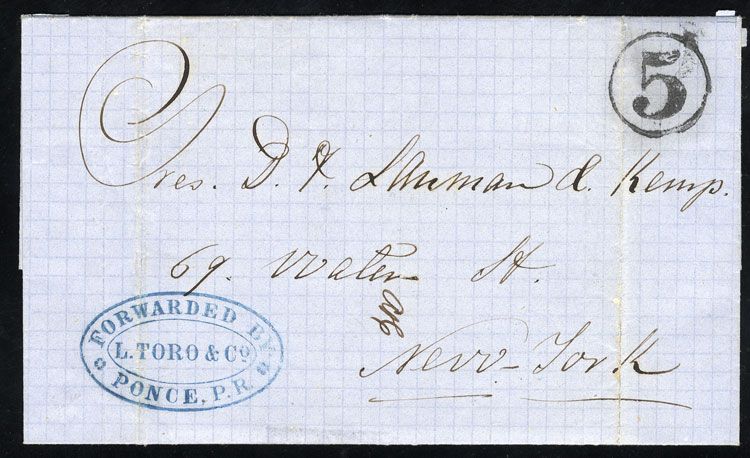 5
Sres. D. T. Lanman & Kemp.
69. Water St.
New-York
FORWARDED BY
L. TORO & Co
PONCE, P.R.